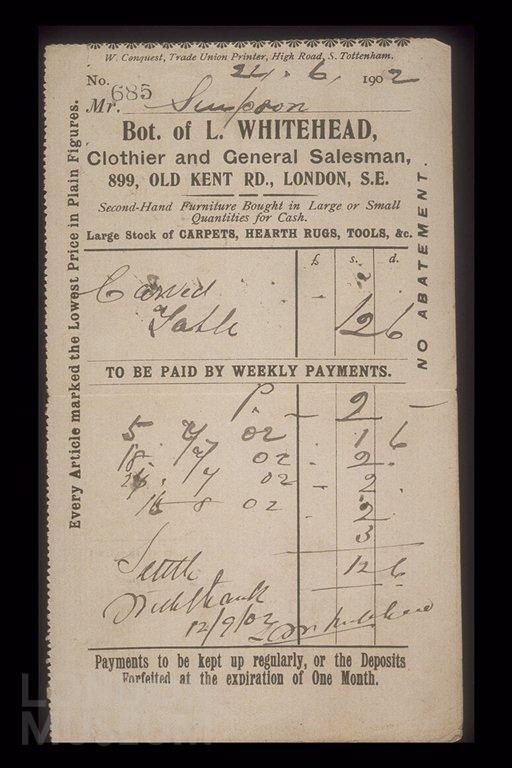 W. Conquest, Trade Union Printer, High Road, S. Tottenham.
No. 685 24. 6. 1902
Mr. Simpson
Bot. of L. WHITEHEAD,
Clothier and General Salesman,
899, OLD KENT RD., LONDON, S.E.
Second-Hand Furniture Bought in Large or Small
Quantities for Cash.
Large Stock of CARPETS, HEARTH RUGS, TOOLS, &c.
Every Article marked the Lowest Price in Plain Figures.
NO ABATEMENT.
£ s. d.
Carved
Table 12 6
TO BE PAID BY WEEKLY PAYMENTS.
P. – 2 –
5 7 02 1 6
18. 7 02 - 2 .
26. 7 02 - 2 .
16 8 02 2
3
Settle 12 6
With thank
12/9/02 L Whitehead
Payments to be kept up regularly, or the Deposits
Forfeited at the expiration of One Month.
MUSEUM